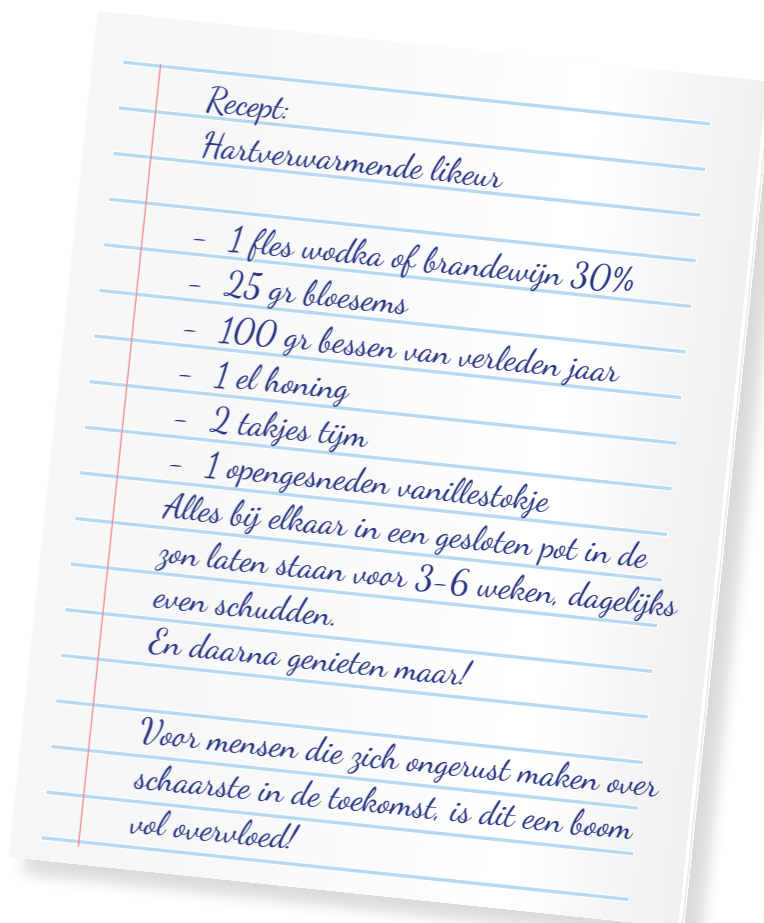 Recept:
Hartverwarmende likeur
- 1 fles wodka of brandewijn 30%
- 25 gr bloesems
- 100 gr bessen van verleden jaar
- 1 el honing
- 2 takjes tijm
- 1 opengesneden vanillestokje
Alles bij elkaar in een gesloten pot in de
zon laten staan voor 3-6 weken, dagelijks
even schudden.
En daarna genieten maar!
Voor mensen die zich ongerust maken over
schaarste in de toekomst, is dit een boom
vol overvloed!